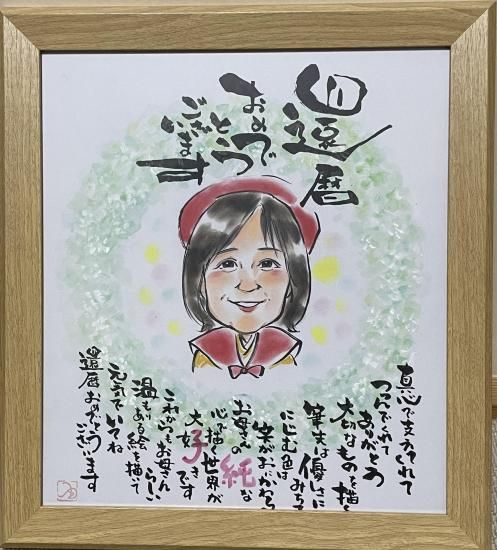 還暦
おめでとう
ございます
真心で支えてくれて
つつんでくれて
ありがとう
大切なものを描く
筆末は優しさに
にじむ色は
お母さんの純な
心で描く世界が
大好子きです
これからもお母さんらしい
温もりある絵を描いて
元気でいてね
還暦おめでとうございます